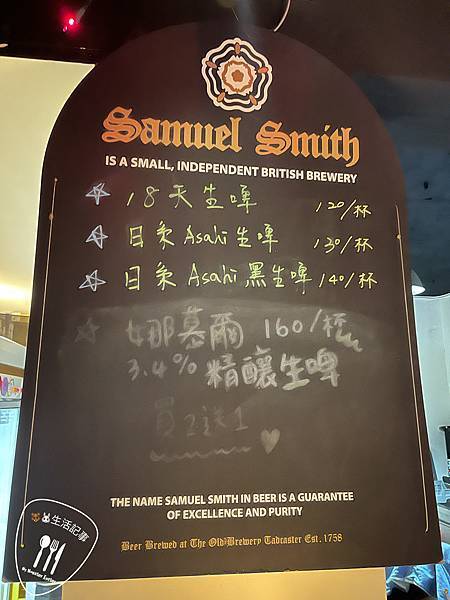 Samuel Smith
IS A SMALL, INDEPENDENT BRITISH BREWERY
18天生啤 120/杯
日系Asahi生啤 130/杯
日系Asahi黑生啤 140/杯
娜慕爾 160/杯
3.4% 精釀生啤
買2送1
THE NAME SAMUEL SMITH IN BEER IS A GUARANTEE
OF EXCELLENCE AND PURITY
Beer Brewed at The Old Brewery Tadcaster Est. 1758
生活記事